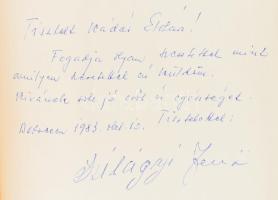 Tisztelt Kádás Elvtárs!
Fogadja olyan szeretettel mint
amilyen szeretettel én küldöm.
Kívánok sok jó erőt és egészséget.
Debrecen 1983. okt. 10. Tisztelettel:
Szilágyi Jenő